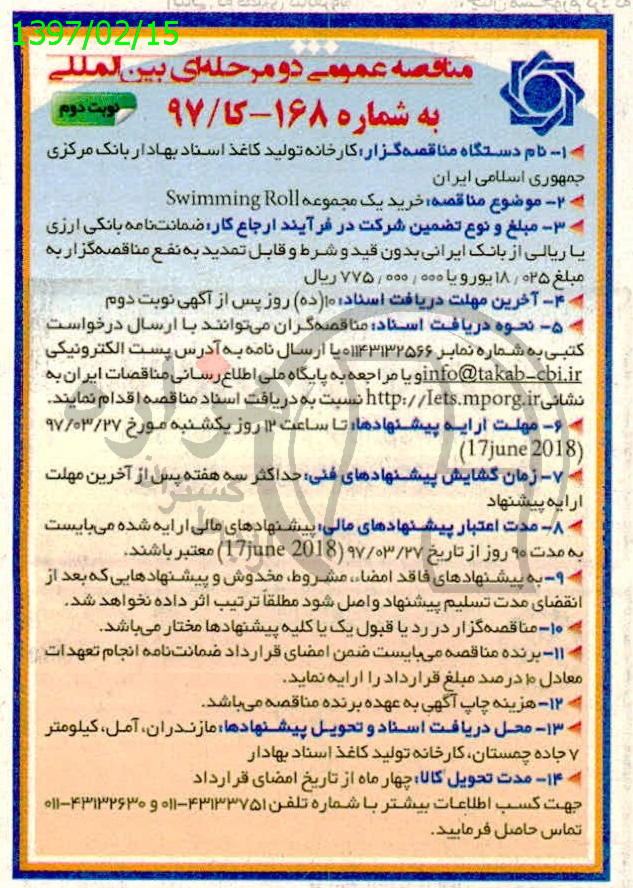 1397/02/15
مناقصه عمومی دو مرحله‌ای بین‌المللی
به شماره ۱۶۸-کا/۹۷
نوبت دوم
۱- نام دستگاه مناقصه‌گزار: کارخانه تولید کاغذ اسناد بهادار بانک مرکزی
جمهوری اسلامی ایران
۲- موضوع مناقصه: خرید یک مجموعه Swimming Roll
۳- مبلغ و نوع تضمین شرکت در فرآیند ارجاع کار: ضمانت‌نامه بانکی ارزی
یا ریالی از بانک ایرانی بدون قید و شرط و قابل تمدید به نفع مناقصه‌گزار به
مبلغ ۱۸٫۰۲۵ یورو یا ۷۷۵٫۰۰۰٫۰۰۰ ریال
۴- آخرین مهلت دریافت اسناد: ۱۰(ده) روز پس از آگهی نوبت دوم
۵- نحوه دریافت اسناد: مناقصه‌گران می‌توانند با ارسال درخواست
کتبی به شماره نمابر ۰۱۱۴۳۱۳۲۵۶۶ یا ارسال نامه به آدرس پست الکترونیکی
info@takab-cbi.ir و یا مراجعه به پایگاه ملی اطلاع‌رسانی مناقصات ایران به
نشانی http://Iets.mporg.ir نسبت به دریافت اسناد مناقصه اقدام نمایند.
۶- مهلت ارایه پیشنهادها: تا ساعت ۱۲ روز یکشنبه مورخ ۹۷/۰۳/۲۷
(17june 2018)
۷- زمان گشایش پیشنهادهای فنی: حداکثر سه هفته پس از آخرین مهلت
ارایه پیشنهاد
۸- مدت اعتبار پیشنهادهای مالی: پیشنهادهای مالی ارایه شده می‌بایست
به مدت ۹۰ روز از تاریخ ۹۷/۰۳/۲۷ (17june 2018) معتبر باشند.
۹- به پیشنهادهای فاقد امضاء، مشروط، مخدوش و پیشنهادهایی که بعد از
انقضای مدت تسلیم پیشنهاد واصل شود مطلقاً ترتیب اثر داده نخواهد شد.
۱۰- مناقصه‌گزار در رد یا قبول یک یا کلیه پیشنهادها مختار می‌باشد.
۱۱- برنده مناقصه می‌بایست ضمن امضای قرارداد ضمانت‌نامه انجام تعهدات
معادل ۱۰ درصد مبلغ قرارداد را ارایه نماید.
۱۲- هزینه چاپ آگهی به عهده برنده مناقصه می‌باشد.
۱۳- محل دریافت اسناد و تحویل پیشنهادها: مازندران، آمل، کیلومتر
۷ جاده چمستان، کارخانه تولید کاغذ اسناد بهادار
۱۴- مدت تحویل کالا: چهار ماه از تاریخ امضای قرارداد
جهت کسب اطلاعات بیشتر با شماره تلفن ۴۳۱۳۳۷۵۱-۰۱۱ و ۴۳۱۳۲۶۳۰-۰۱۱
تماس حاصل فرمایید.